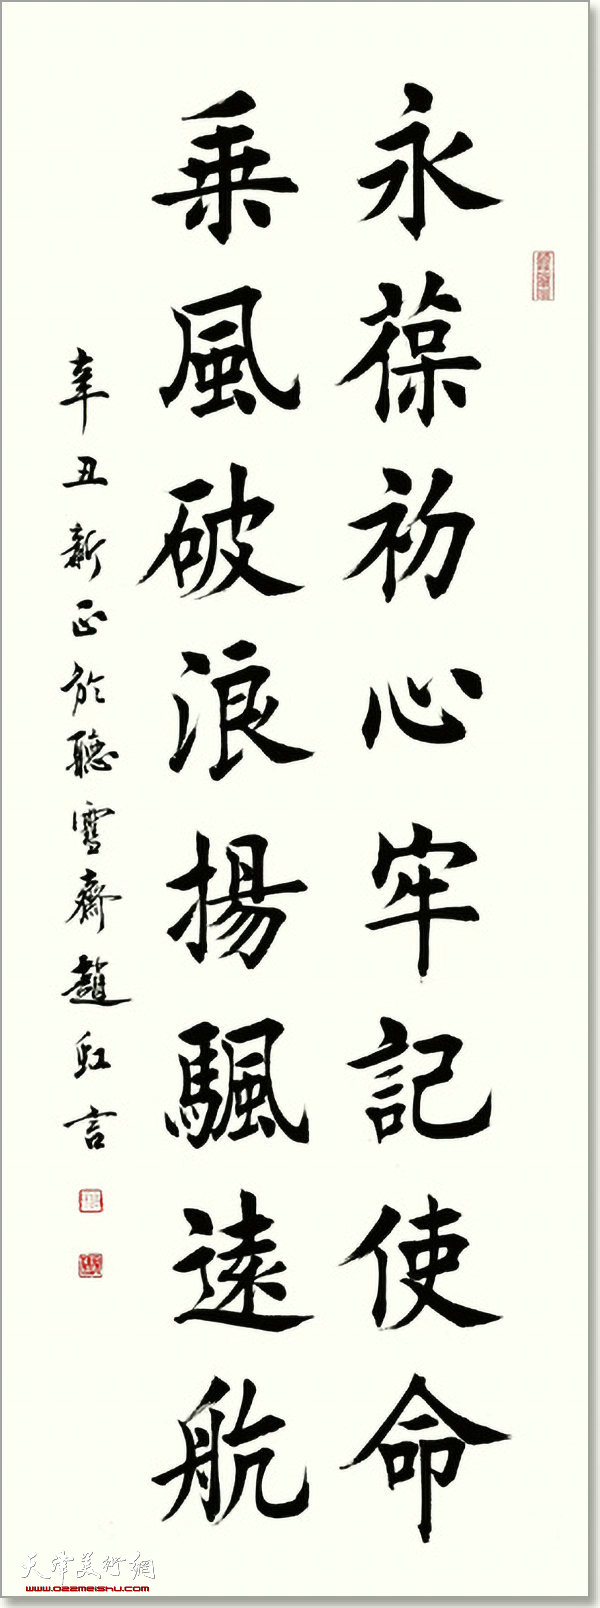 永葆初心牢記使命
乘風破浪揚颿遠航
辛丑新正於聽雪齋趙紅言
天津美術網
www.022meishu.com